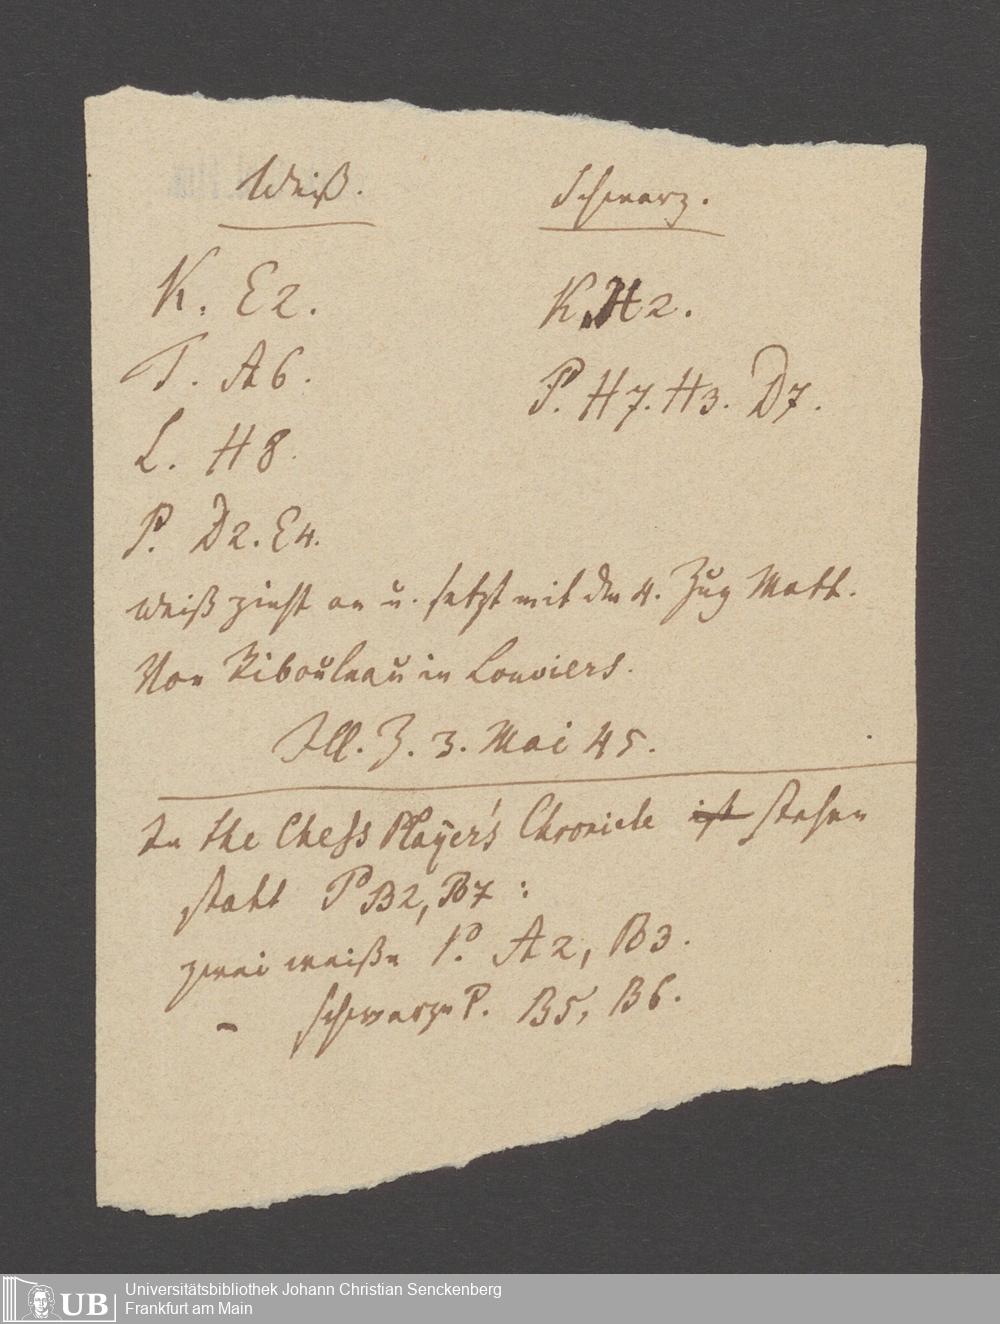 Weiß. Schwarz.
K. E2. K. H2.
T. A6. P. H7. H3. D7.
L. H8.
P. D2. E4.
Weiß zieht an u. setzt mit dem 4. Zug Matt.
Von Ribouleau in Louviers.
Ill. Z. 3. Mai 45.
In the Chess Player's Chronicle ist stehen
statt P B2, B7:
zwei weiße P. A2, B3.
– schwarze P. B5, B6.
UB
Universitätsbibliothek Johann Christian Senckenberg
Frankfurt am Main